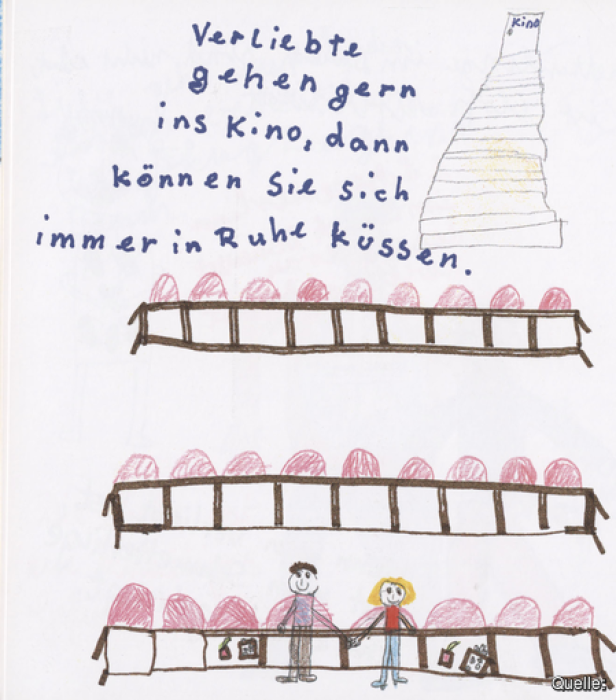 Verliebte
gehen gern
ins Kino, dann
können Sie sich
immer in Ruhe küssen.
Kino
Quelle: